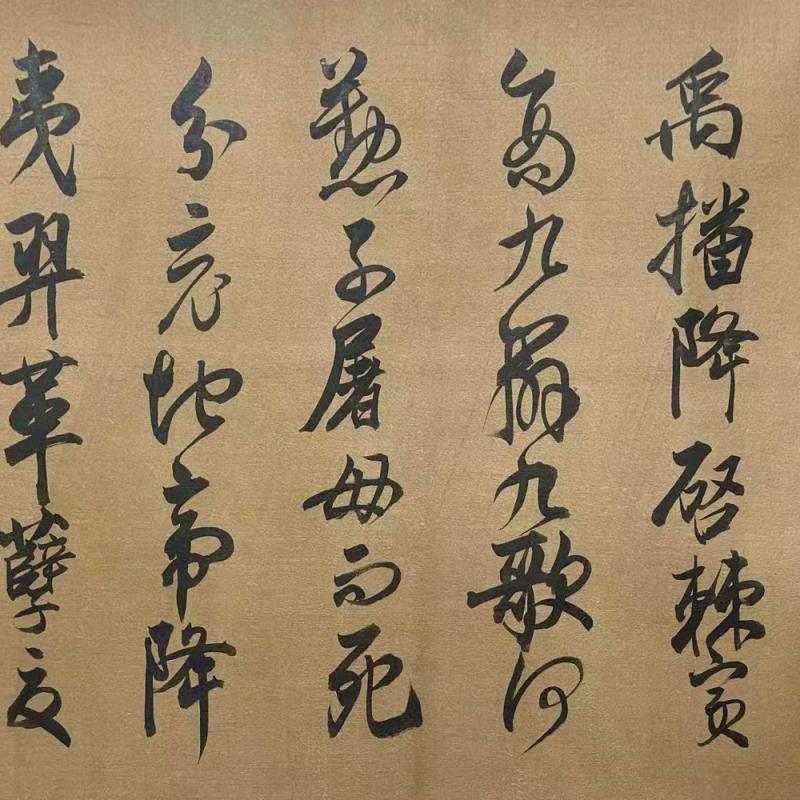 禹播降啓棘賓
商九辯九歌何
懃子屠母而死
分竟地帝降
夷羿革孽夏